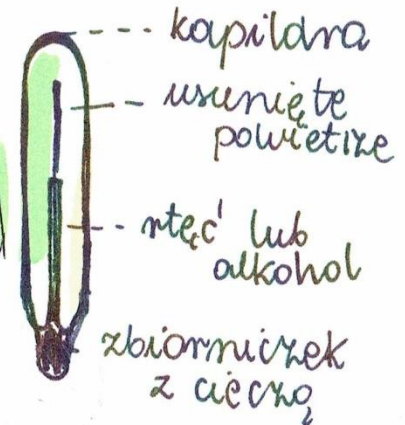 kapilara
usunięte
powietrze
rtęć lub
alkohol
zbiorniczek
z cieczą